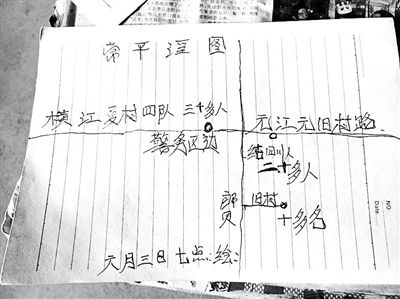 常平淫图
横江夏村四队 三十多人
元江元旧村路
警务区边
纯四川人
二十多人
郎贝
旧村
十多名
元月三日七点绘:
NO
Date